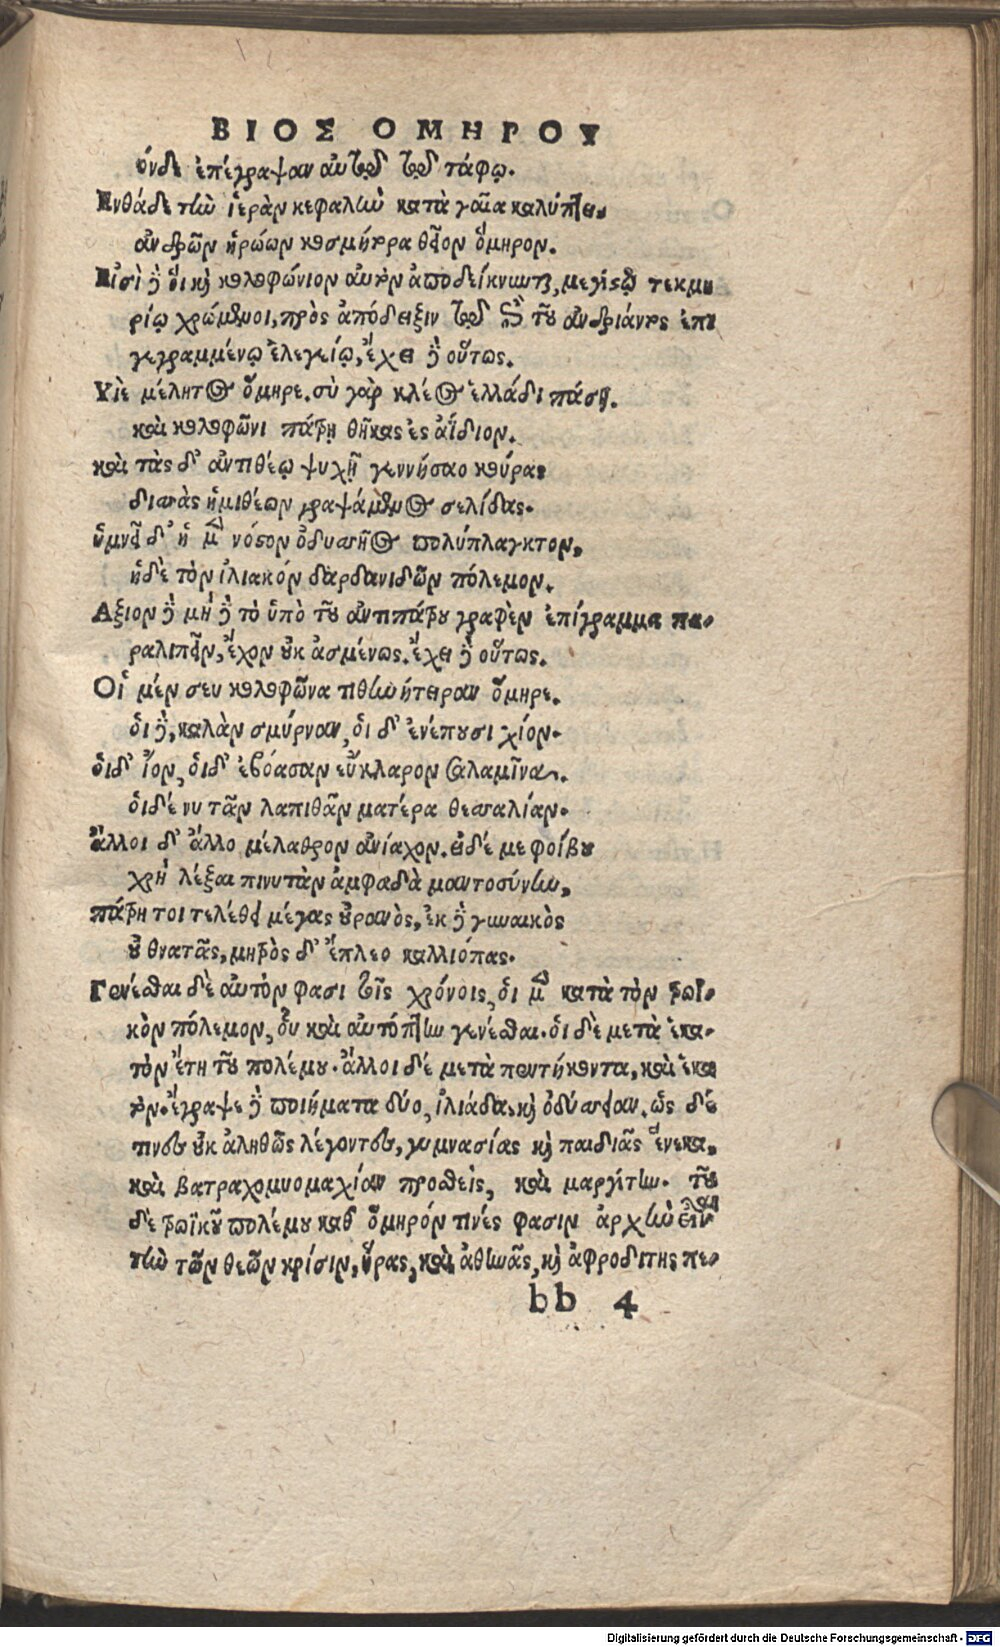 ΒΙΟΣ ΟΜΗΡΟΥ
όνδε ἐπέγραψαν αὐτοῦ τῷ τάφῳ.
Ενθάδε τὴν ἱερὰν κεφαλὴν κατὰ γαῖα καλύπτει,
ἀνδρῶν ἡρώων κοσμήτορα θεῖον ὅμηρον.
Εἰσὶ δὲ οἳ καὶ κολοφώνιον αὐτὸν ἀποδείκνυνται, μεγίστῳ τεκμη
ρίῳ χρώμενοι, πρὸς ἀπόδειξιν τῷ ἐπὶ τοῦ ἀνδριάντος ἐπι
γεγραμμένῳ ἐλεγείῳ, ἔχει δὲ οὕτως.
Υἱὲ μέλητος ὅμηρε. σὺ γὰρ κλέος ἑλλάδι πάσῃ.
καὶ κολοφῶνι πάτρῃ θῆκας ἐς ἀΐδιον.
καὶ τὰς δ' ἀντιθέῳ ψυχῇ γεννήσαο κούρας
δισσὰς ἡμιθέων γραψάμενος σελίδας.
ὑμνεῖ δ' ἡ μὲν νόστον ὀδυσσῆος πολύπλαγκτον,
ἡδὲ τὸν ἰλιακὸν δαρδανιδῶν πόλεμον.
Αξιον δὲ μὴ δὲ τὸ ὑπὸ τοῦ ἀντιπάτρου γραφὲν ἐπίγραμμα πα-
ραλιπεῖν, ἔχον οὐκ ἀσμένως. ἔχει δὲ οὕτως.
Οἱ μέν σευ κολοφῶνα τιθηνήτειραν ὅμηρε.
οἱ δὲ, καλὰν σμύρναν, οἱ δ' ἐνέπουσι χίον.
οἱ δ' ἴον, οἱ δ' ἐβόασαν εὔκλαρον σαλαμῖνα.
οἱ δέ νυ τᾶν λαπιθᾶν ματέρα θεσσαλίαν.
ἄλλοι δ' ἄλλο μέλαθρον ἀνίαχον. εἰ δέ με φοίβου
χρὴ λέξαι πινυτὰν ἀμφαδὰ μαντοσύνην,
πάτρη τοι τελέθει μέγας οὐρανὸς, ἐκ δὲ γυναικὸς
οὐ θνατᾶς, μητρὸς δ' ἔπλεο καλλιόπας.
Γενέσθαι δὲ αὐτὸν φασι τοῖς χρόνοις, οἱ μὲν κατὰ τὸν τρωϊ-
κὸν πόλεμον, οὗ καὶ αὐτόπτην γενέσθαι. οἱ δὲ μετὰ ἑκα-
τὸν ἔτη τοῦ πολέμου. ἄλλοι δέ μετὰ πεντήκοντα, καὶ ἑκα
τόν. ἔγραψε δὲ ποιήματα δύο, ἰλιάδα, καὶ ὀδύσσειαν. ὡς δέ
τινες οὐκ ἀληθῶς λέγοντες, γυμνασίας καὶ παιδιᾶς ἕνεκα,
καὶ βατραχομυομαχίαν προσθεὶς, καὶ μαργίτην. τοῦ
δὲ τρωϊκοῦ πολέμου καθ' ὅμηρόν τινές φασιν ἀρχὴν εἶναι
τὴν τῶν θεῶν κρίσιν, ἥρας, καὶ ἀθηνᾶς, καὶ ἀφροδίτης πε-
bb 4
Digitalisierung gefördert durch die Deutsche Forschungsgemeinschaft - DFG